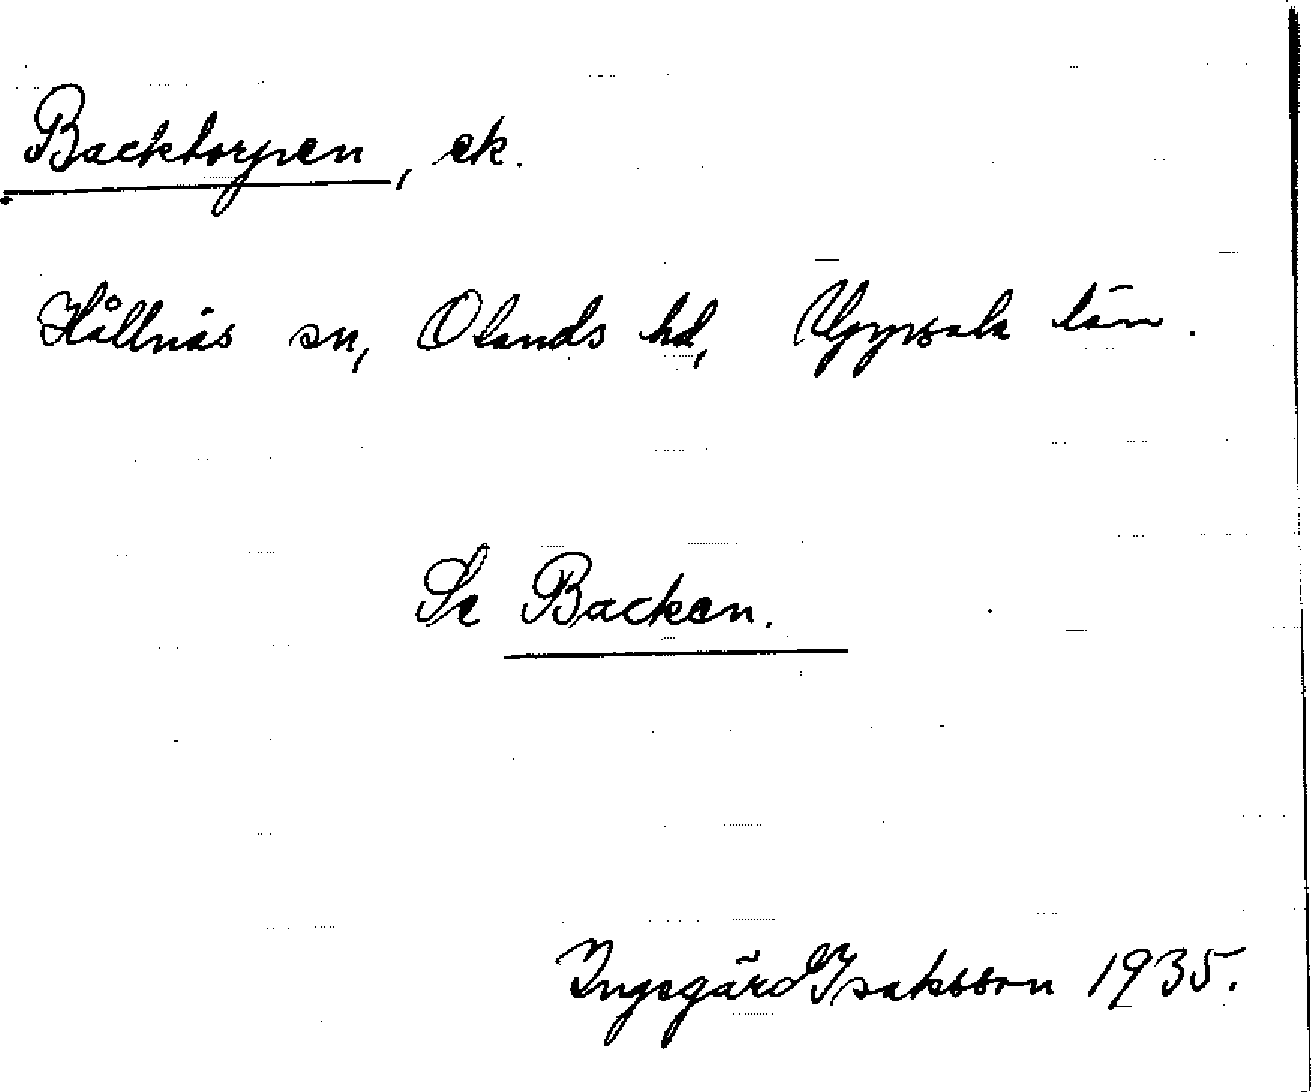 Backtorpen, ek.
Hållnäs sn, Olands hd, Uppsala län.
Se Backen.
Ingegärd Isaksson 1935.